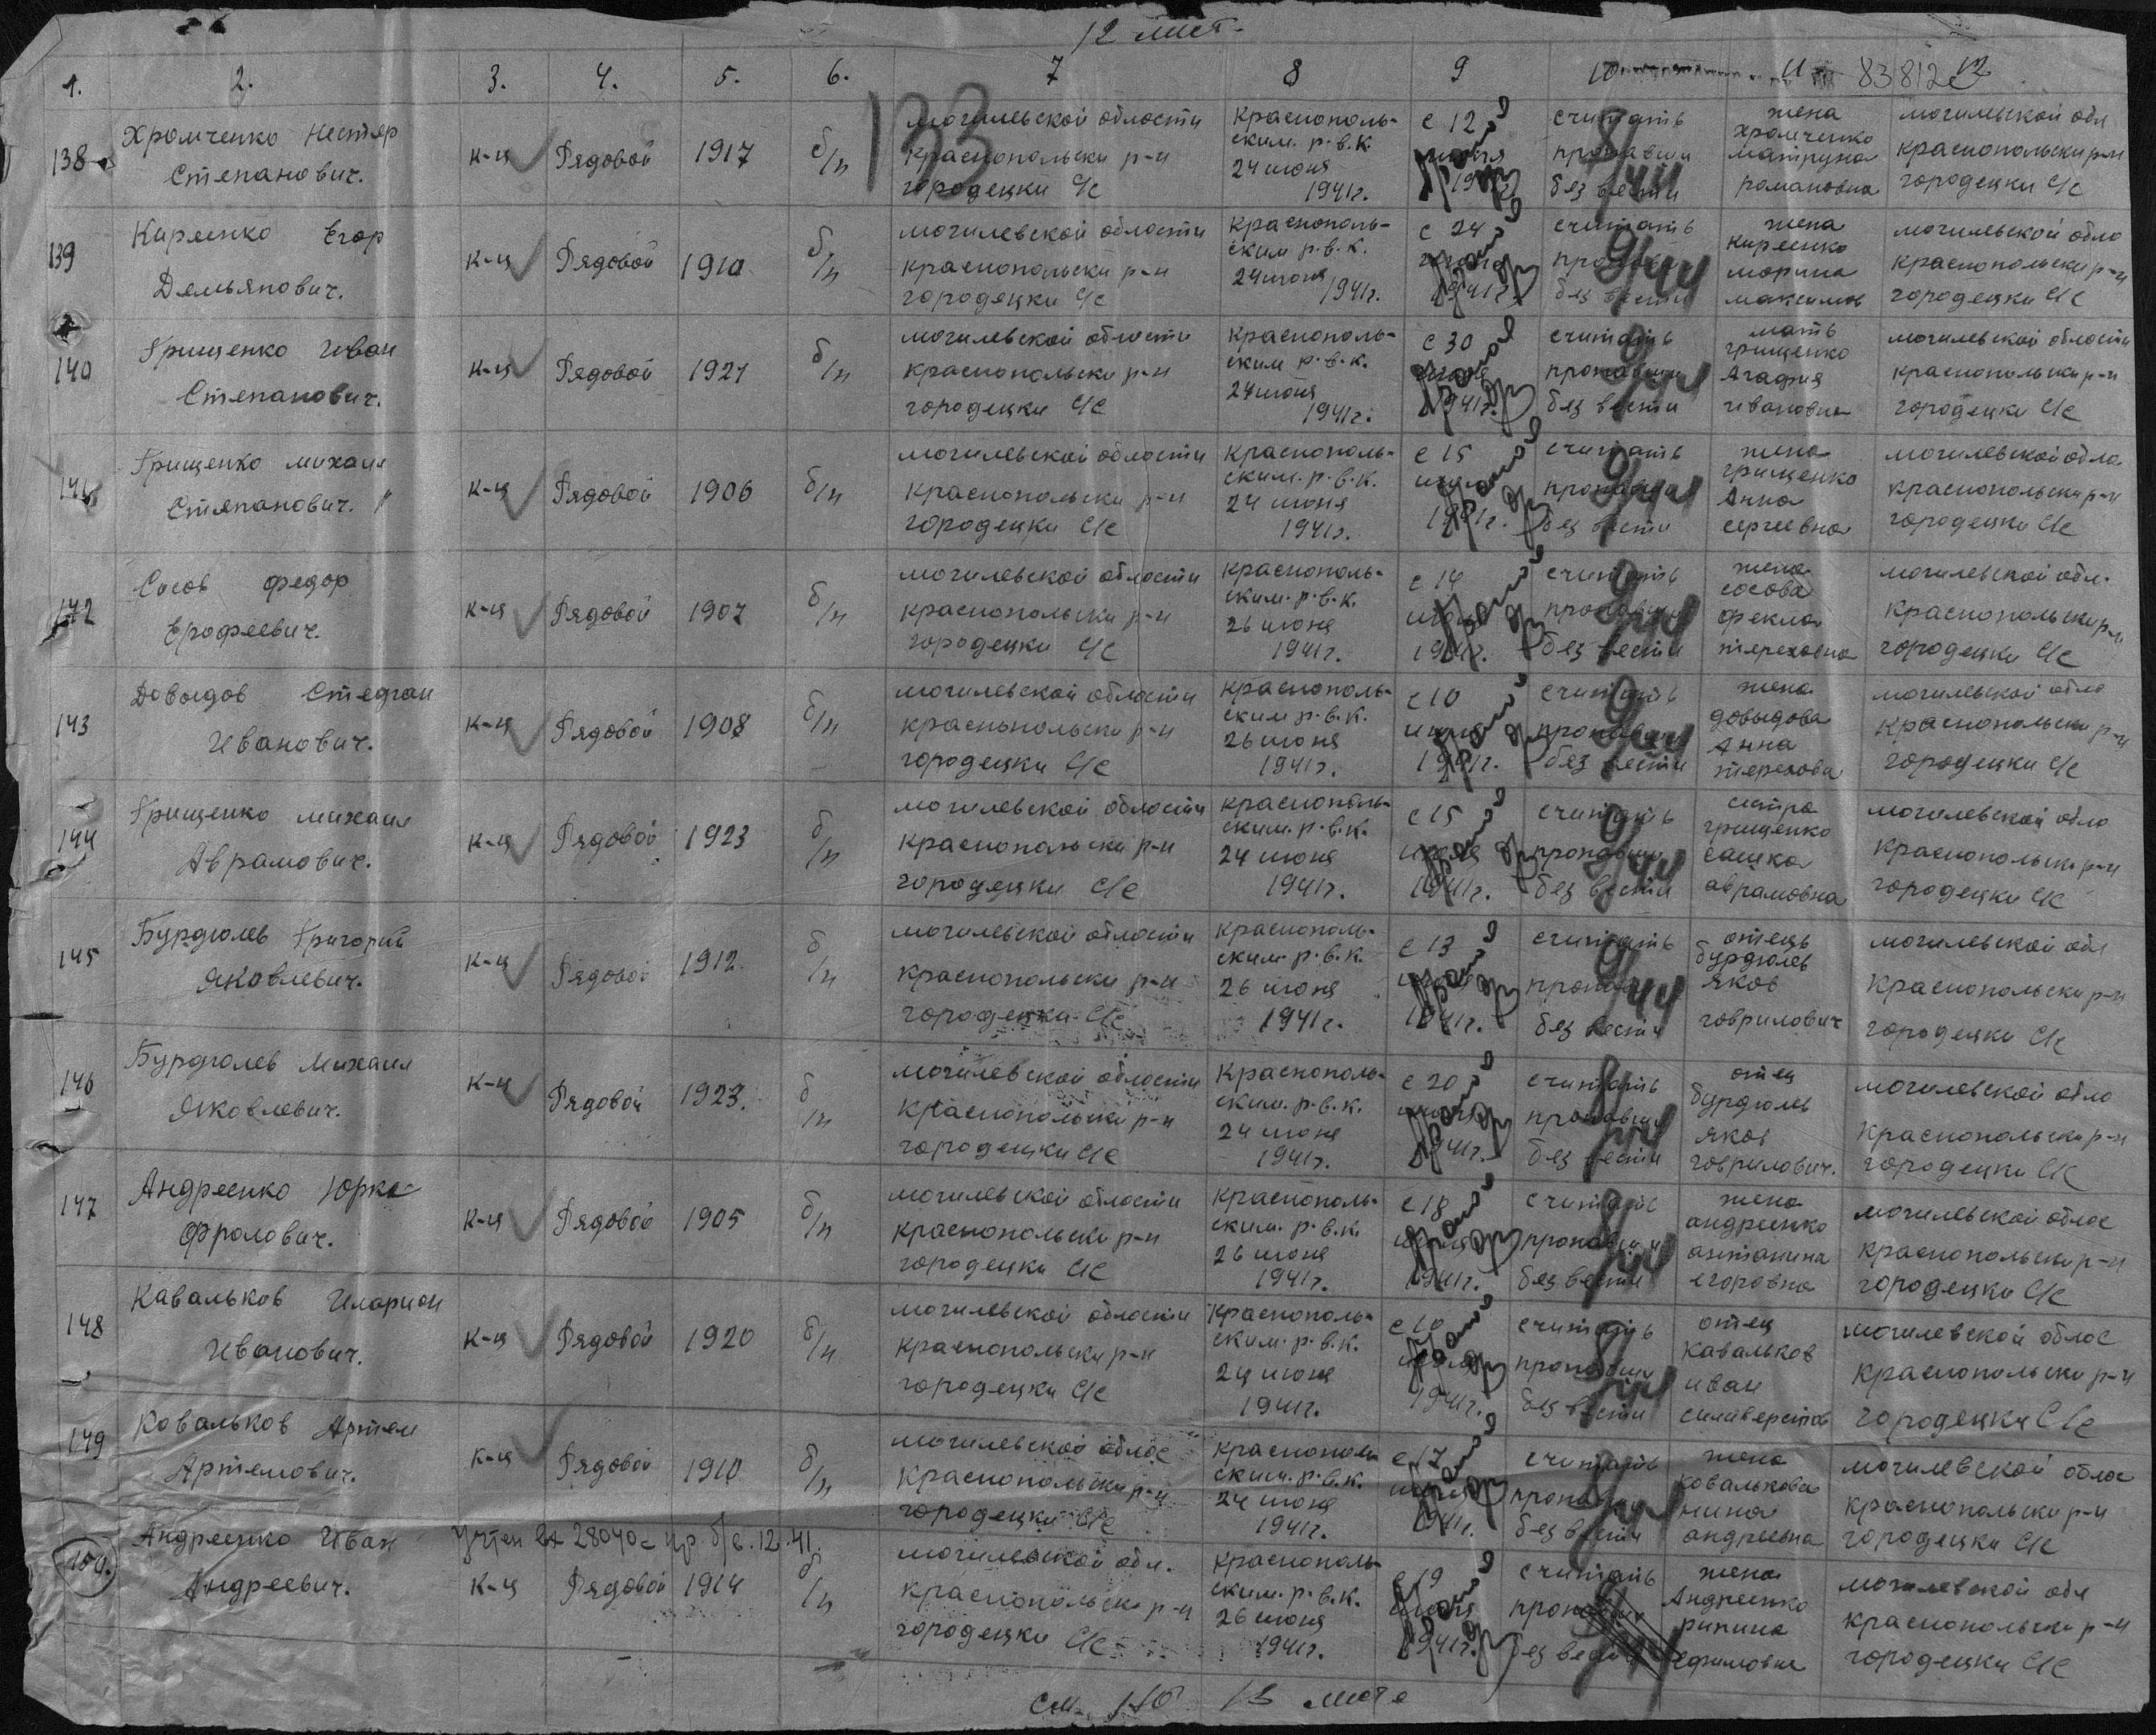 12 лист.
1. 2. 3. 4. 5. 6. 7 8 9 10 11 83812с 12
133
138 Хромченко Нестер Степанович. к-ц Рядовой 1917 б/п могилевской области краснопольски р-н городецки С/С Краснополь-ским. р.в.К 24 июня 1941г. с 12 считать пропавши без вести жена хромченко матруна романовна могилевской обл краснопольски р-н городецки С/С
139 Киреенко Егор Демьянович. к-ц Рядовой 1910 б/п могилевской области краснопольски р-н городецки С/С Краснополь-ским р.в.К. 24 июня 1941г. с 24 1941г. считать без вести жена киреенко марина максимов могилевской обла краснопольски р-н городецки С/С
140 Грищенко Иван Степанович. к-ц Рядовой 1921 б/п могилевской области краснопольски р-н городецки С/С Краснополь-ским р.в.К. 24 июня 1941г. с 30 1941г. считать пропавши без вести мать грищенко Агафия ивановна могилевской области краснопольски р-н городецки С/С
141 Грищенко михаил Степанович. к-ц Рядовой 1906 б/п могилевской области краснопольски р-н городецки С/С Краснополь-ским. р.в.К. 24 июня 1941г. с 15 1941г. считать пропавши без вести жена грищенко Анна сергеевна могилевской обла краснопольски р-н городецки С/С
142 Сосов федор Ерофеевич. к-ц Рядовой 1907 б/п могилевской области краснопольски р-н городецки С/С Краснополь-ским. р.в.К. 26 июня 1941г. с 14 1941г. считать пропавши без вести жена сосова фекла тереховна могилевской обл. краснопольски р-н городецки С/С
143 Довыдов Стефган Иванович. к-ц Рядовой 1908 б/п могилевской области краснопольски р-н городецки С/С Краснополь-ским р.в.К. 26 июня 1941г. с 10 1941г. считать пропавши без вести жена довыдова Анна терехова могилевской обла краснопольски р-н городецки С/С
144 Грищенко михаил Аврамович. к-ц Рядовой 1923 б/п могилевской области краснопольски р-н городецки С/С Краснополь-ским. р.в.К. 24 июня 1941г. с 15 1941г. считать пропавши без вести систра грищенко сашка аврамовна могилевской обла краснопольски р-н городецки С/С
145 Бурдюлев Григорий Яковлевич. к-ц Рядовой 1912. б/п могилевской области краснопольски р-н городецки С/С Краснополь-ским. р.в.К. 26 июня 1941г. с 13 1941г. считать без вести отець бурдюлев яков говрилович могилевской обл краснопольски р-н городецки С/С
146 Бурдюлев Михаил Яковлевич. к-ц Рядовой 1923. б/п могилевской области краснопольски р-н городецки С/С Краснополь-ским. р.в.К. 24 июня 1941г. с 20 1941г. считать пропавши без вести отец бурдюлев яков говрилович. могилевской обла краснопольски р-н городецки С/С
147 Андреенко Юрка Фролович. к-ц Рядовой 1905 б/п могилевской области краснопольски р-н городецки С/С Краснополь-ским. р.в.К. 26 июня 1941г. с 18 1941г. считать пропавши без вести жена андреенко антанина егоровна могилевской облас краснопольски р-н городецки С/С
148 Кавальков Иларион Иванович. к-ц Рядовой 1920 б/п могилевской области краснопольски р-н городецки С/С Краснополь-ским. р.в.К. 24 июня 1941г. с 10 1941г. считать пропавши без вести отец Кавальков иван силиверстов могилевской облас краснопольски р-н городецки С/С
149 Ковальков Артем Артемович. к-ц Рядовой 1910 б/п могилевской облас Краснопольски р-н городецки С/С Краснополь-ским. р.в.К. 24 июня 1941г. с 17 1941г. считать пропавши без вести жена Ковалькова нина андреевна могилевской облас краснопольски р-н городецки С/С
Учтен 28040с пр. б/в. 12.41.
150. Андреенко Иван Андреевич. к-ц Рядовой 1914 б/п могилевской обл. краснопольски р-н городецки С/С Краснополь-ским. р.в.К. 26 июня 1941г. с 19 1941г. считать без вести жена Андреенко рипина ефимовна могилевской обл краснопольски р-н городецки С/С
см. 13 листе